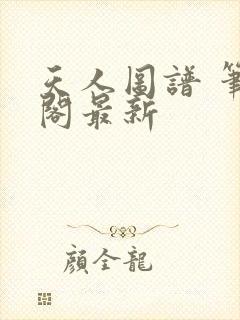 天人圖譜 筆
閣最新
顏全龍